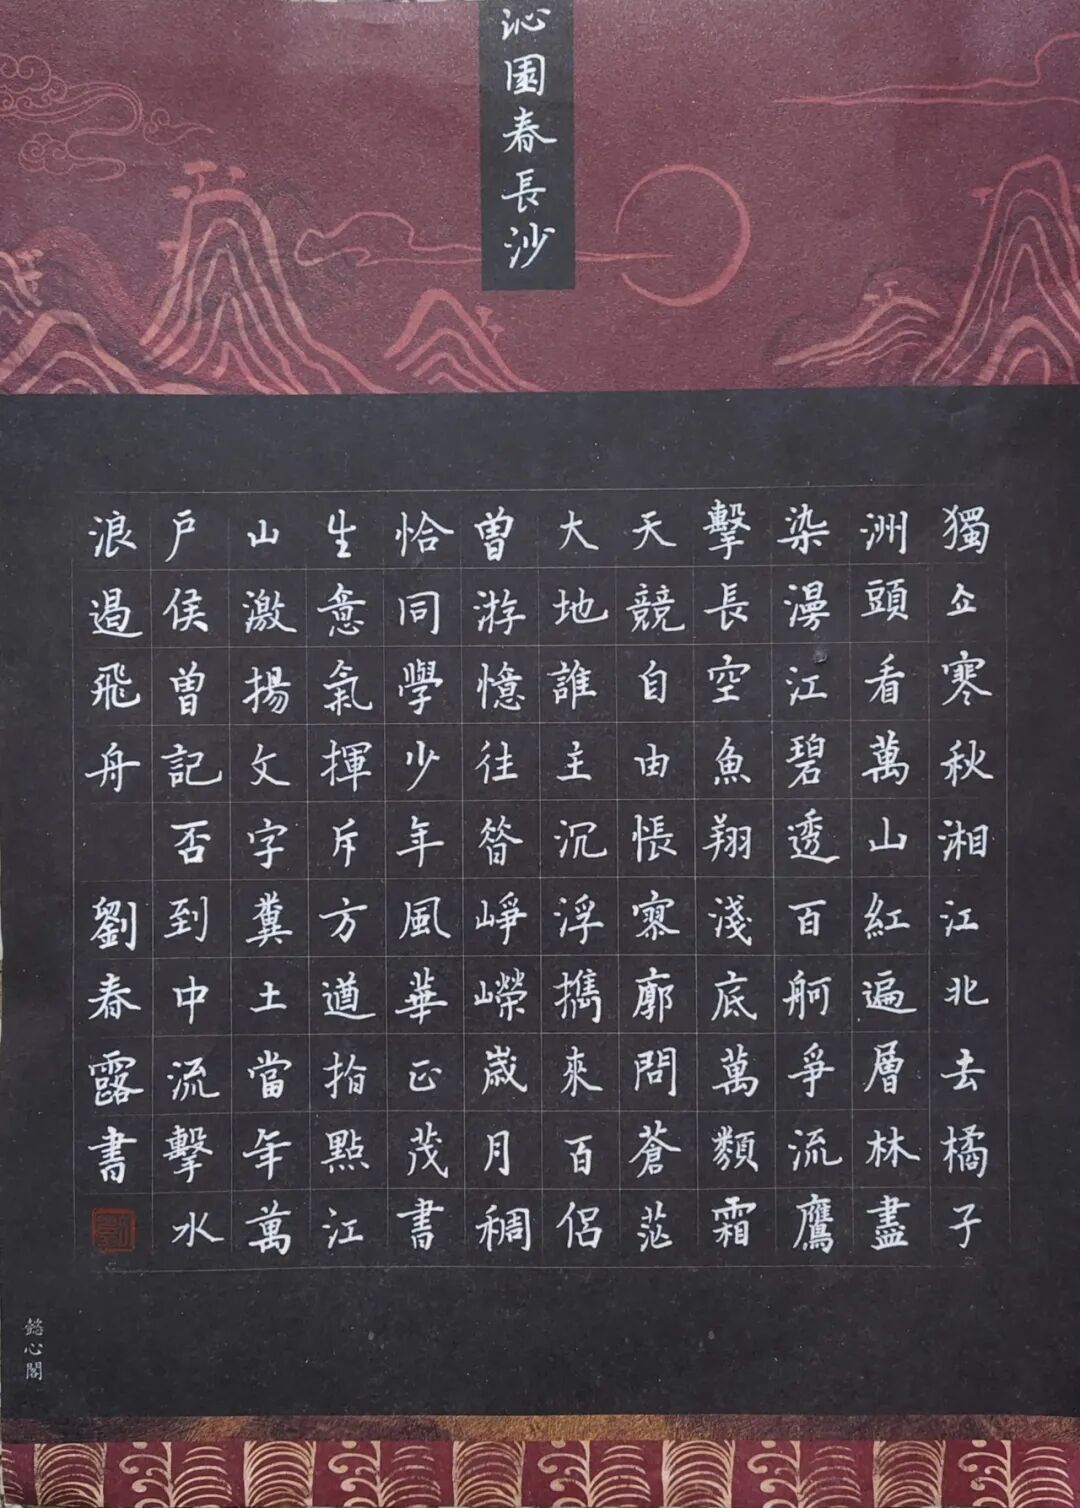 沁園春長沙
獨立寒秋湘江北去橘子
洲頭看萬山紅遍層林盡
染漫江碧透百舸爭流鷹
擊長空魚翔淺底萬類霜
天競自由悵寥廓問蒼茫
大地誰主沉浮攜來百侶
曾游憶往昔崢嶸歲月稠
恰同學少年風華正茂書
生意氣揮斥方遒指點江
山激揚文字糞土當年萬
戶侯曾記否到中流擊水
浪遏飛舟 劉春露書
懿心閣